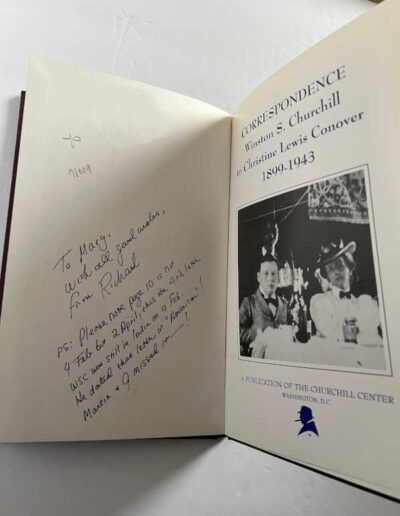 To Mary,
With all good wishes,
From Richard
PS: Please note page 10 is not
4 Feb but 2 April, thus the 4th letter.
WSC was still in India on 4 Feb.
He dated that letter in "American"!
Martin & I missed it—!
CORRESPONDENCE
Winston S. Churchill
to Christine Lewis Conover
1899-1943
A PUBLICATION OF THE CHURCHILL CENTER
WASHINGTON, D.C.